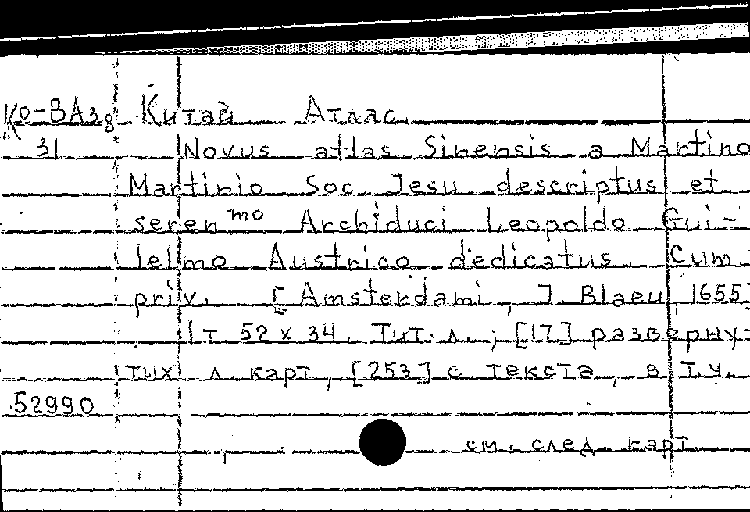 Ко-ВАзв Китай Атлас
31 Novus atlas Sinensis a Martino
Martinio Soc. Jesu descriptus et
seren mo Archiduci Leopoldo Gui-
lelmo Austrico dedicatus. Cum
priv. [Amsterdami, J. Blaeu 1655]
1 т 52 x 34. Тит. л.; [17] разверну-
тых л. карт, [253] с текста, в т.ч.
52990
см. след карт